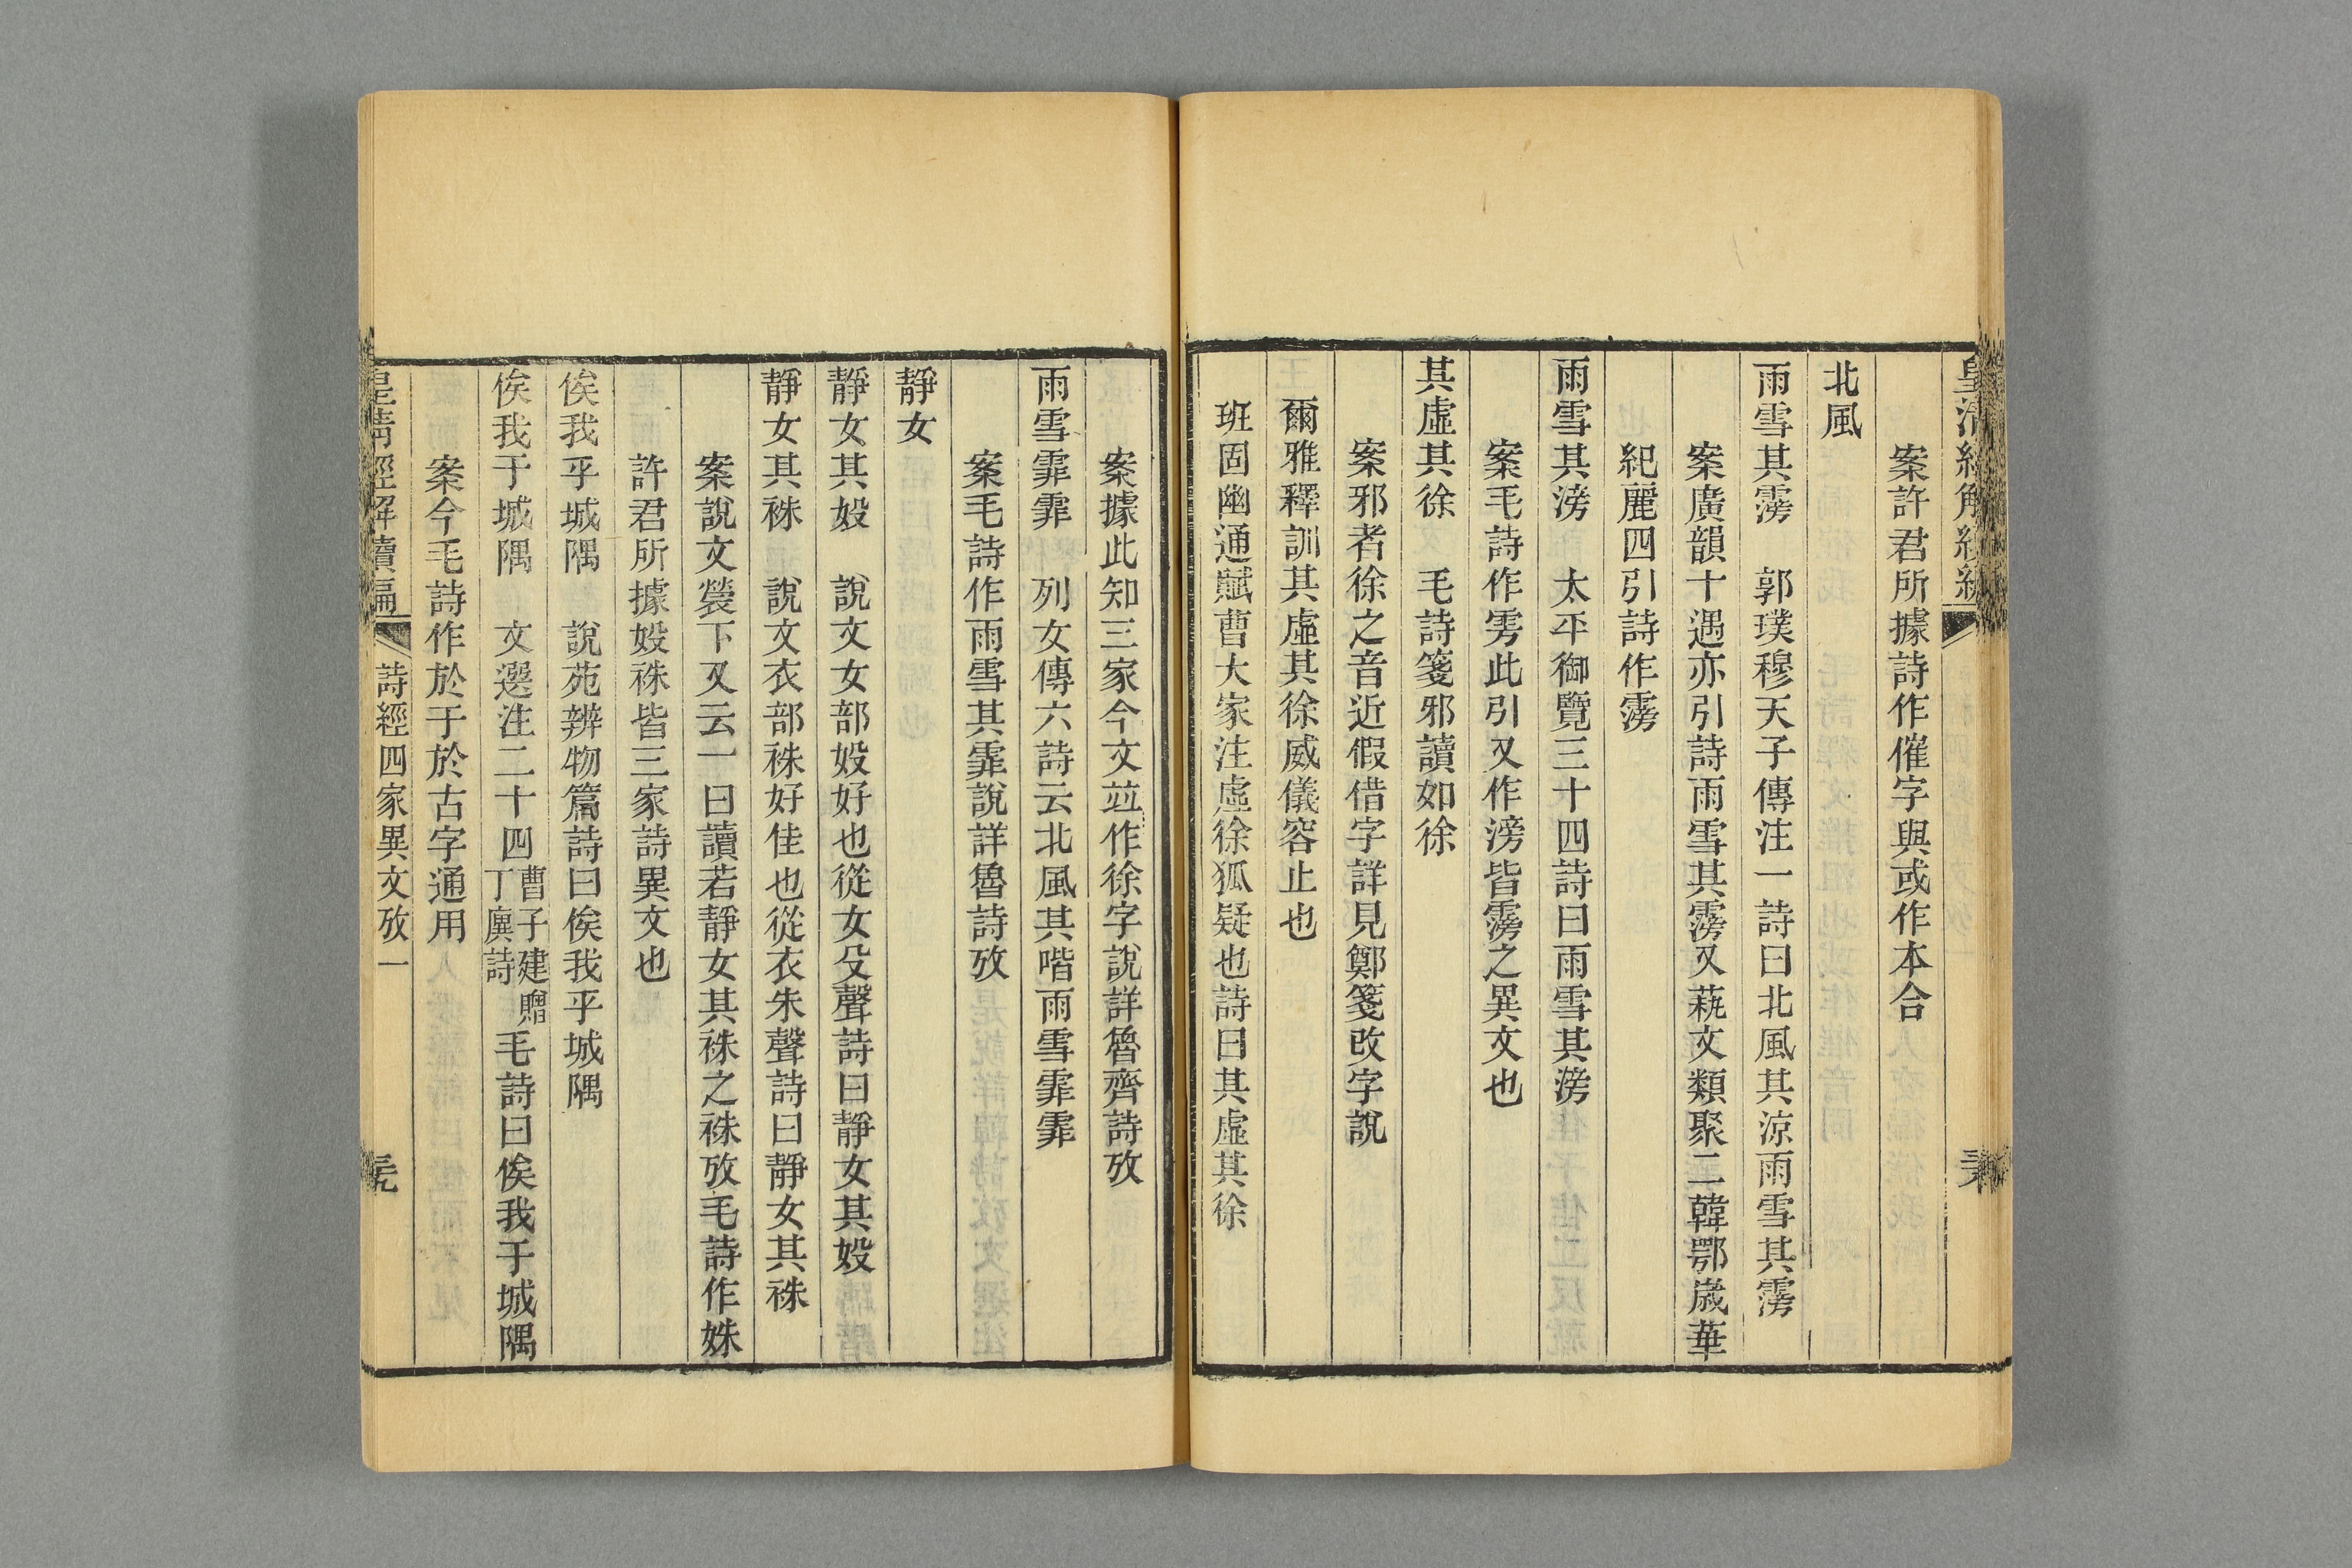 皇清經解續
案許君所據詩作催字與或作本合
北風
雨雪其霶　郭璞穆天子傳注一詩曰北風其涼雨雪其霶
案廣韻十遇亦引詩雨雪其霶又蓺文類聚二韓鄂歲華
紀麗四引詩作霶
雨雪其滂　太平御覽三十四詩曰雨雪其滂
案毛詩作雱此引又作滂皆霶之異文也
其虛其徐　毛詩箋邪讀如徐
案邪者徐之音近假借字詳見鄭箋改字說
爾雅釋訓其虛其徐威儀容止也
班固幽通賦曹大家注虛徐狐疑也詩曰其虛其徐
案據此知三家今文竝作徐字說詳魯齊詩攷
雨雪霏霏　列女傳六詩云北風其喈雨雪霏霏
案毛詩作雨雪其霏說詳魯詩攷
靜女
靜女其㚼　說文女部㚼好也從女殳聲詩曰靜女其㚼
靜女其袾　說文衣部袾好佳也從衣朱聲詩曰靜女其袾
案說文褮下又云一曰讀若靜女其袾之袾攷毛詩作姝
許君所據㚼袾皆三家詩異文也
俟我乎城隅　說苑辨物篇詩曰俟我乎城隅
俟我于城隅　文選注二十四曹子建贈丁廙詩毛詩曰俟我于城隅
案今毛詩作於于於古字通用
皇清經解續編　詩經四家異文攷一　三九